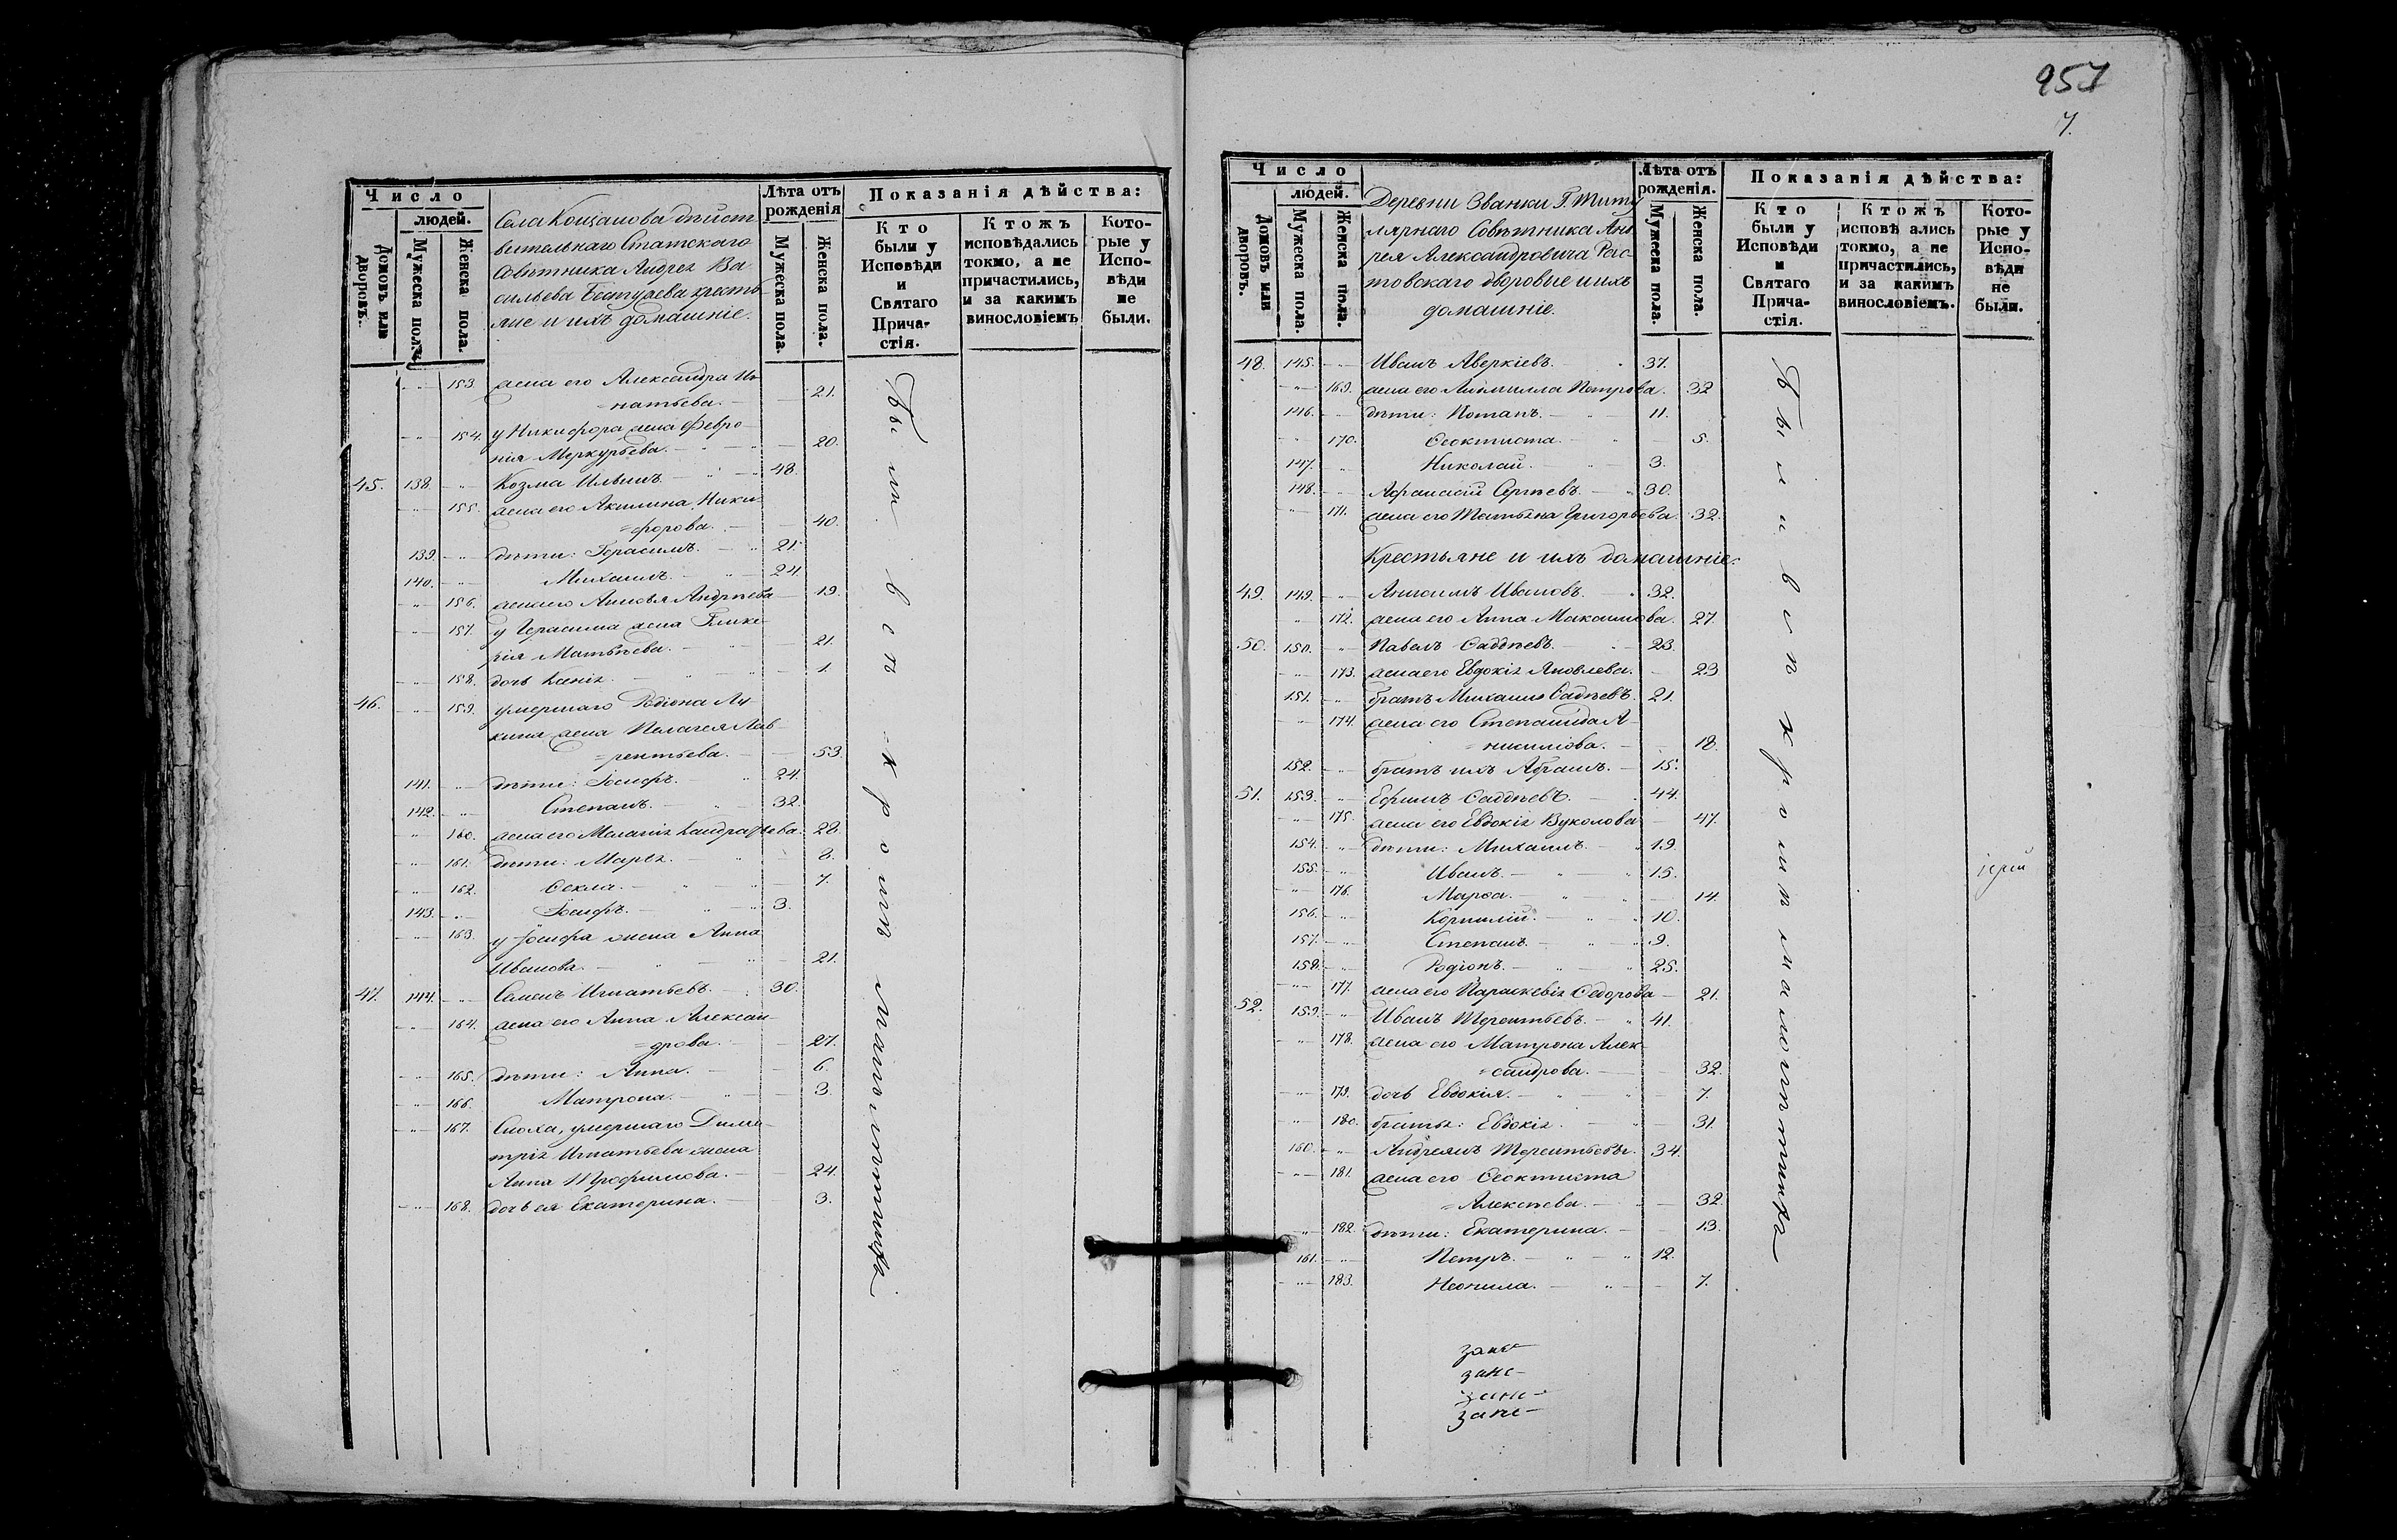 957
7.
Число
людей.
Домовъ или дворовъ.
Мужеска полу
Женска пола.
Села Кощанова дѣйст
вительнаго Статскаго
Совѣтника Андрея Ва
сильева Бестужева крестья
яне и ихъ домашніе.
Лѣта отъ рожденія
Мужеска пола.
Женска пола.
Показанія дѣйства:
Кто были у Исповѣди и Святаго Прича-стія.
Ктожъ исповѣдались токмо, а не причастились, и за какимъ винословіемъ
Кото-рые у Испо-вѣди не были.
153. жена его Александра Иг
=натьева. 21.
154. у Никифора жена Февро
нія Меркурьева. 20.
45. 138. Козма Ильинъ 48.
155. жена его Акилина Ники
=форова. 40.
139. дѣти: Герасимъ. 21.
140. Михаилъ. 24.
156. жена его Анисья Андрѣева 19.
157. у Герасима жена Глике
рія Матвѣева. 21.
158. дочь Ксенія 1.
46. 159. умершаго Родіона Лу
кина жена Пелагея Лав
=рентьева. 53.
141. дѣти: Іосифъ. 24.
142. Степанъ. 32.
160. жена его Меланія Кандратьева. 28.
161. дѣти: Марья. 8.
162. Ѳекла. 7.
143. Іосифъ. 3.
163. у Іосифа жена Анна
Иванова. 21.
47. 144. Семенъ Игнатьевъ. 30.
164. жена его Анна Алексан
=дрова. 27.
165. дѣти: Анна. 6.
166. Матрона. 3.
167. Сноха, умершаго Дими
трія Игнатьева жена
Анна Трофимова. 24.
168. дочь ея Екатерина. 3.
Были всѣ кромѣ малолѣтнихъ
Число
людей.
Домовъ или дворовъ.
Мужеска пола.
Женска пола.
Деревни Званки Г. Титу
лярнаго Совѣтника Анд
рея Александровича Рос
товскаго дворовые и ихъ
домашніе.
Лѣта отъ рожденія.
Мужеска пола.
Женска пола.
Показанія дѣйства:
Кто были у Исповѣди и Святаго Прича-стія.
Ктожъ исповѣ ались токмо, а не причастились, и за какимъ винословіемъ.
Кото-рые у Испо-вѣди не были.
48. 145. Иванъ Аверкіевъ. 37.
169. жена его Людмилла Петрова. 32
146. дѣти: Потапъ. 11.
170. Ѳеоктиста. 5.
147. Николай. 3.
148. Афанасій Сергѣевъ. 30.
171. жена его Татьяна Григорьева. 32.
Крестьяне и ихъ домашніе.
49. 149. Анисимъ Ивановъ. 32.
172. жена его Анна Максимова. 27
50. 150. Павелъ Ѳаддѣевъ. 23.
173. жена его Евдокія Яковлева. 23
151. братъ Михаилъ Ѳадѣевъ. 21.
174. жена его Степанида А
=никиіова. 18.
152. братъ ихъ Абрамъ. 15.
51. 153. Ефимъ Ѳаддѣевъ. 44.
175. жена его Евдокія Вуколова 47.
154. дѣти: Михаилъ. 19.
155. Иванъ. 15.
176. Марѳа. 14.
156. Корнилій. 10.
157. Степанъ. 9.
158. Родіонъ. 25.
177. жена его Параскевія Ѳедорова 21.
52. 159. Иванъ Терентьевъ. 41.
178. жена его Матрона Алек
=сандрова. 32.
179. дочь Евдокія. 7.
180. братья: Евдокія. 31.
160. Андреянъ Терентьевъ. 34.
181. жена его Ѳеоктиста
=Алексѣева. 32.
182. дѣти: Екатерина. 13.
161. Петръ. 12.
183. Неонила. 7.
Были всѣ кромѣ малолѣтнихъ
іерей